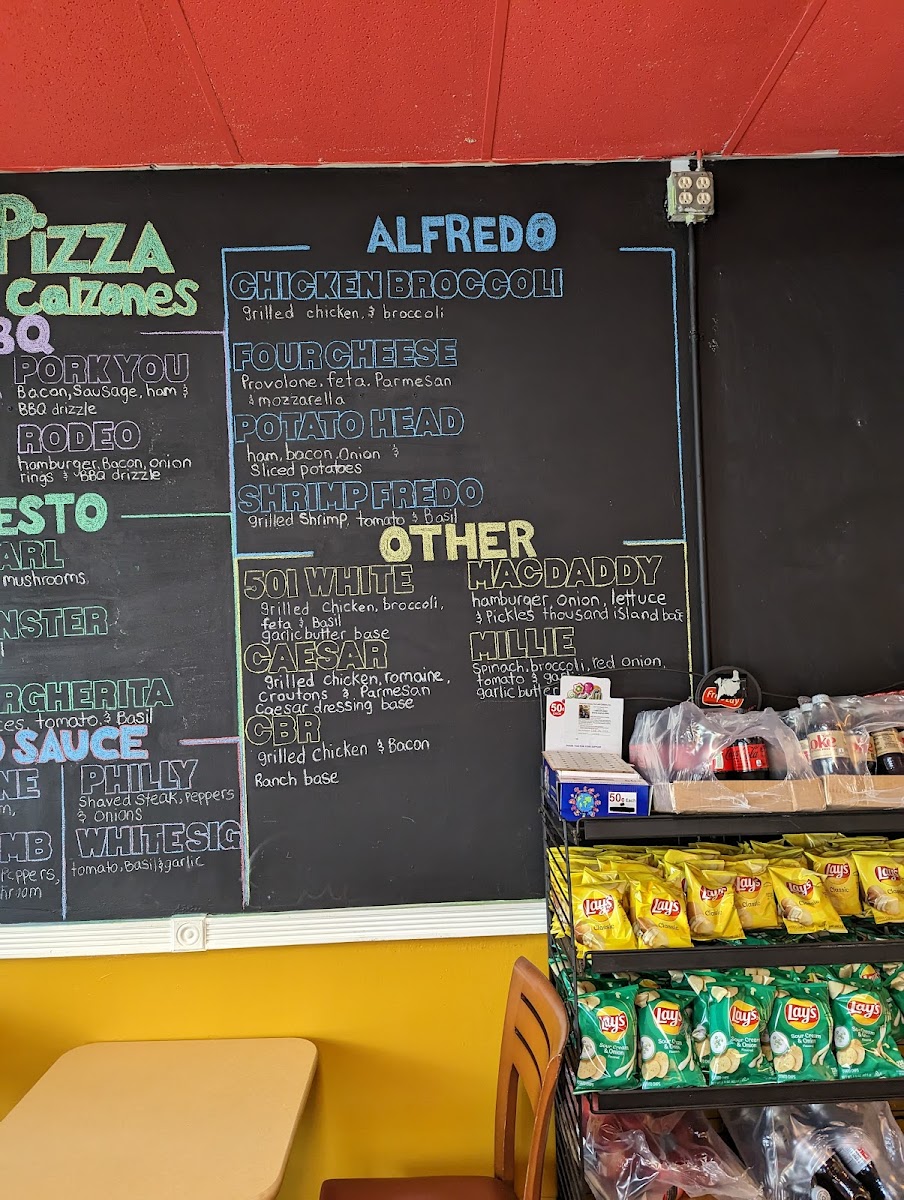 PIZZA
Calzones
BQ
PORK YOU
Bacon, Sausage, ham &
BBQ drizzle
RODEO
hamburger, Bacon, onion
rings & BBQ drizzle
ESTO
ARL
mushrooms
NSTER
RGHERITA
ces, tomato, & Basil
O SAUCE
NE
PHILLY
Shaved steak, Peppers
& onions
MB
Peppers,
WHITE SIG
tomato, Basil & garlic
ALFREDO
CHICKEN BROCCOLI
grilled chicken, & broccoli
FOUR CHEESE
Provolone, feta, Parmesan
& mozzarella
POTATO HEAD
ham, bacon, Onion &
Sliced potatoes
SHRIMP FREDO
grilled Shrimp, tomato & Basil
OTHER
501 WHITE
grilled chicken, broccoli,
feta & Basil
garlic butter base
CAESAR
grilled chicken, romaine,
croutons & Parmesan
Caesar dressing base
CBR
grilled Chicken & Bacon
Ranch base
MACDADDY
hamburger onion, lettuce
& Pickles thousand island base
MILLIE
Spinach, broccoli, red onion,
tomato & ga
garlic butter
FritoLay
50¢
50¢ Each
Coke
Lay's
Classic
Lay's
Classic
Lay's
Classic
Lay's
Classic
Lay's
Classic
Lay's
Lay's
Lay's
Sour Cream
& Onion
Lay's
Lay's
Sour Cream
& Onion
Lay's
Sour Cream
& Onion
Lay's
Sour Cream
& Onion